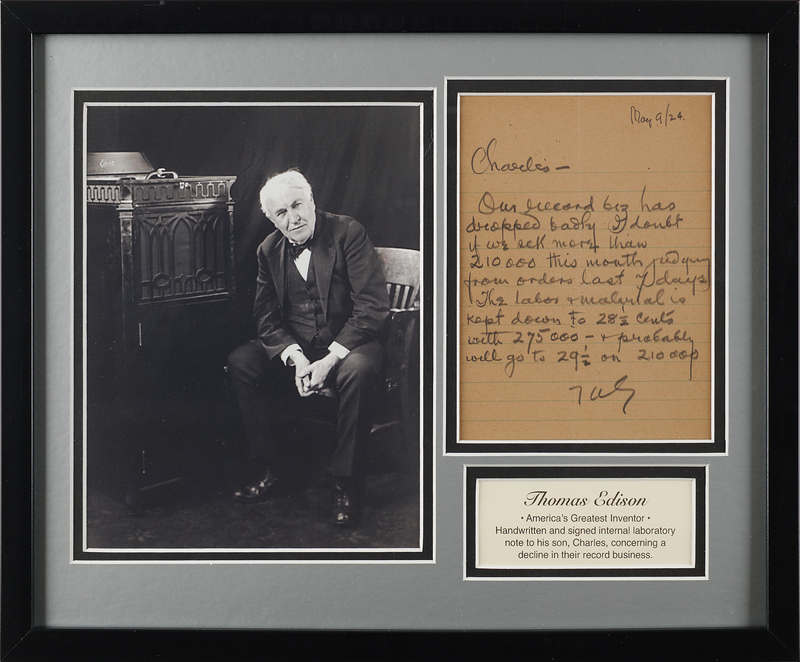 May 9/24.
Charles —
Our record biz has
dropped badly I doubt
if we eck more than
210 000 this month judging
from orders last 7 days
The labor & material is
kept down to 28½ cents
with 275000 — & probably
will go to 29½ on 210000
Thomas Edison
• America's Greatest Inventor •
Handwritten and signed internal laboratory
note to his son, Charles, concerning a
decline in their record business.